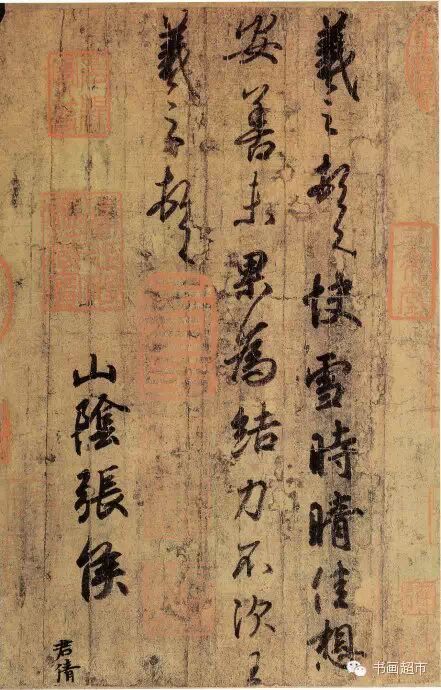 羲之頓首快雪時晴佳想
安善未果為結力不次王
羲之頓首
山陰張侯
君倩
书画超市